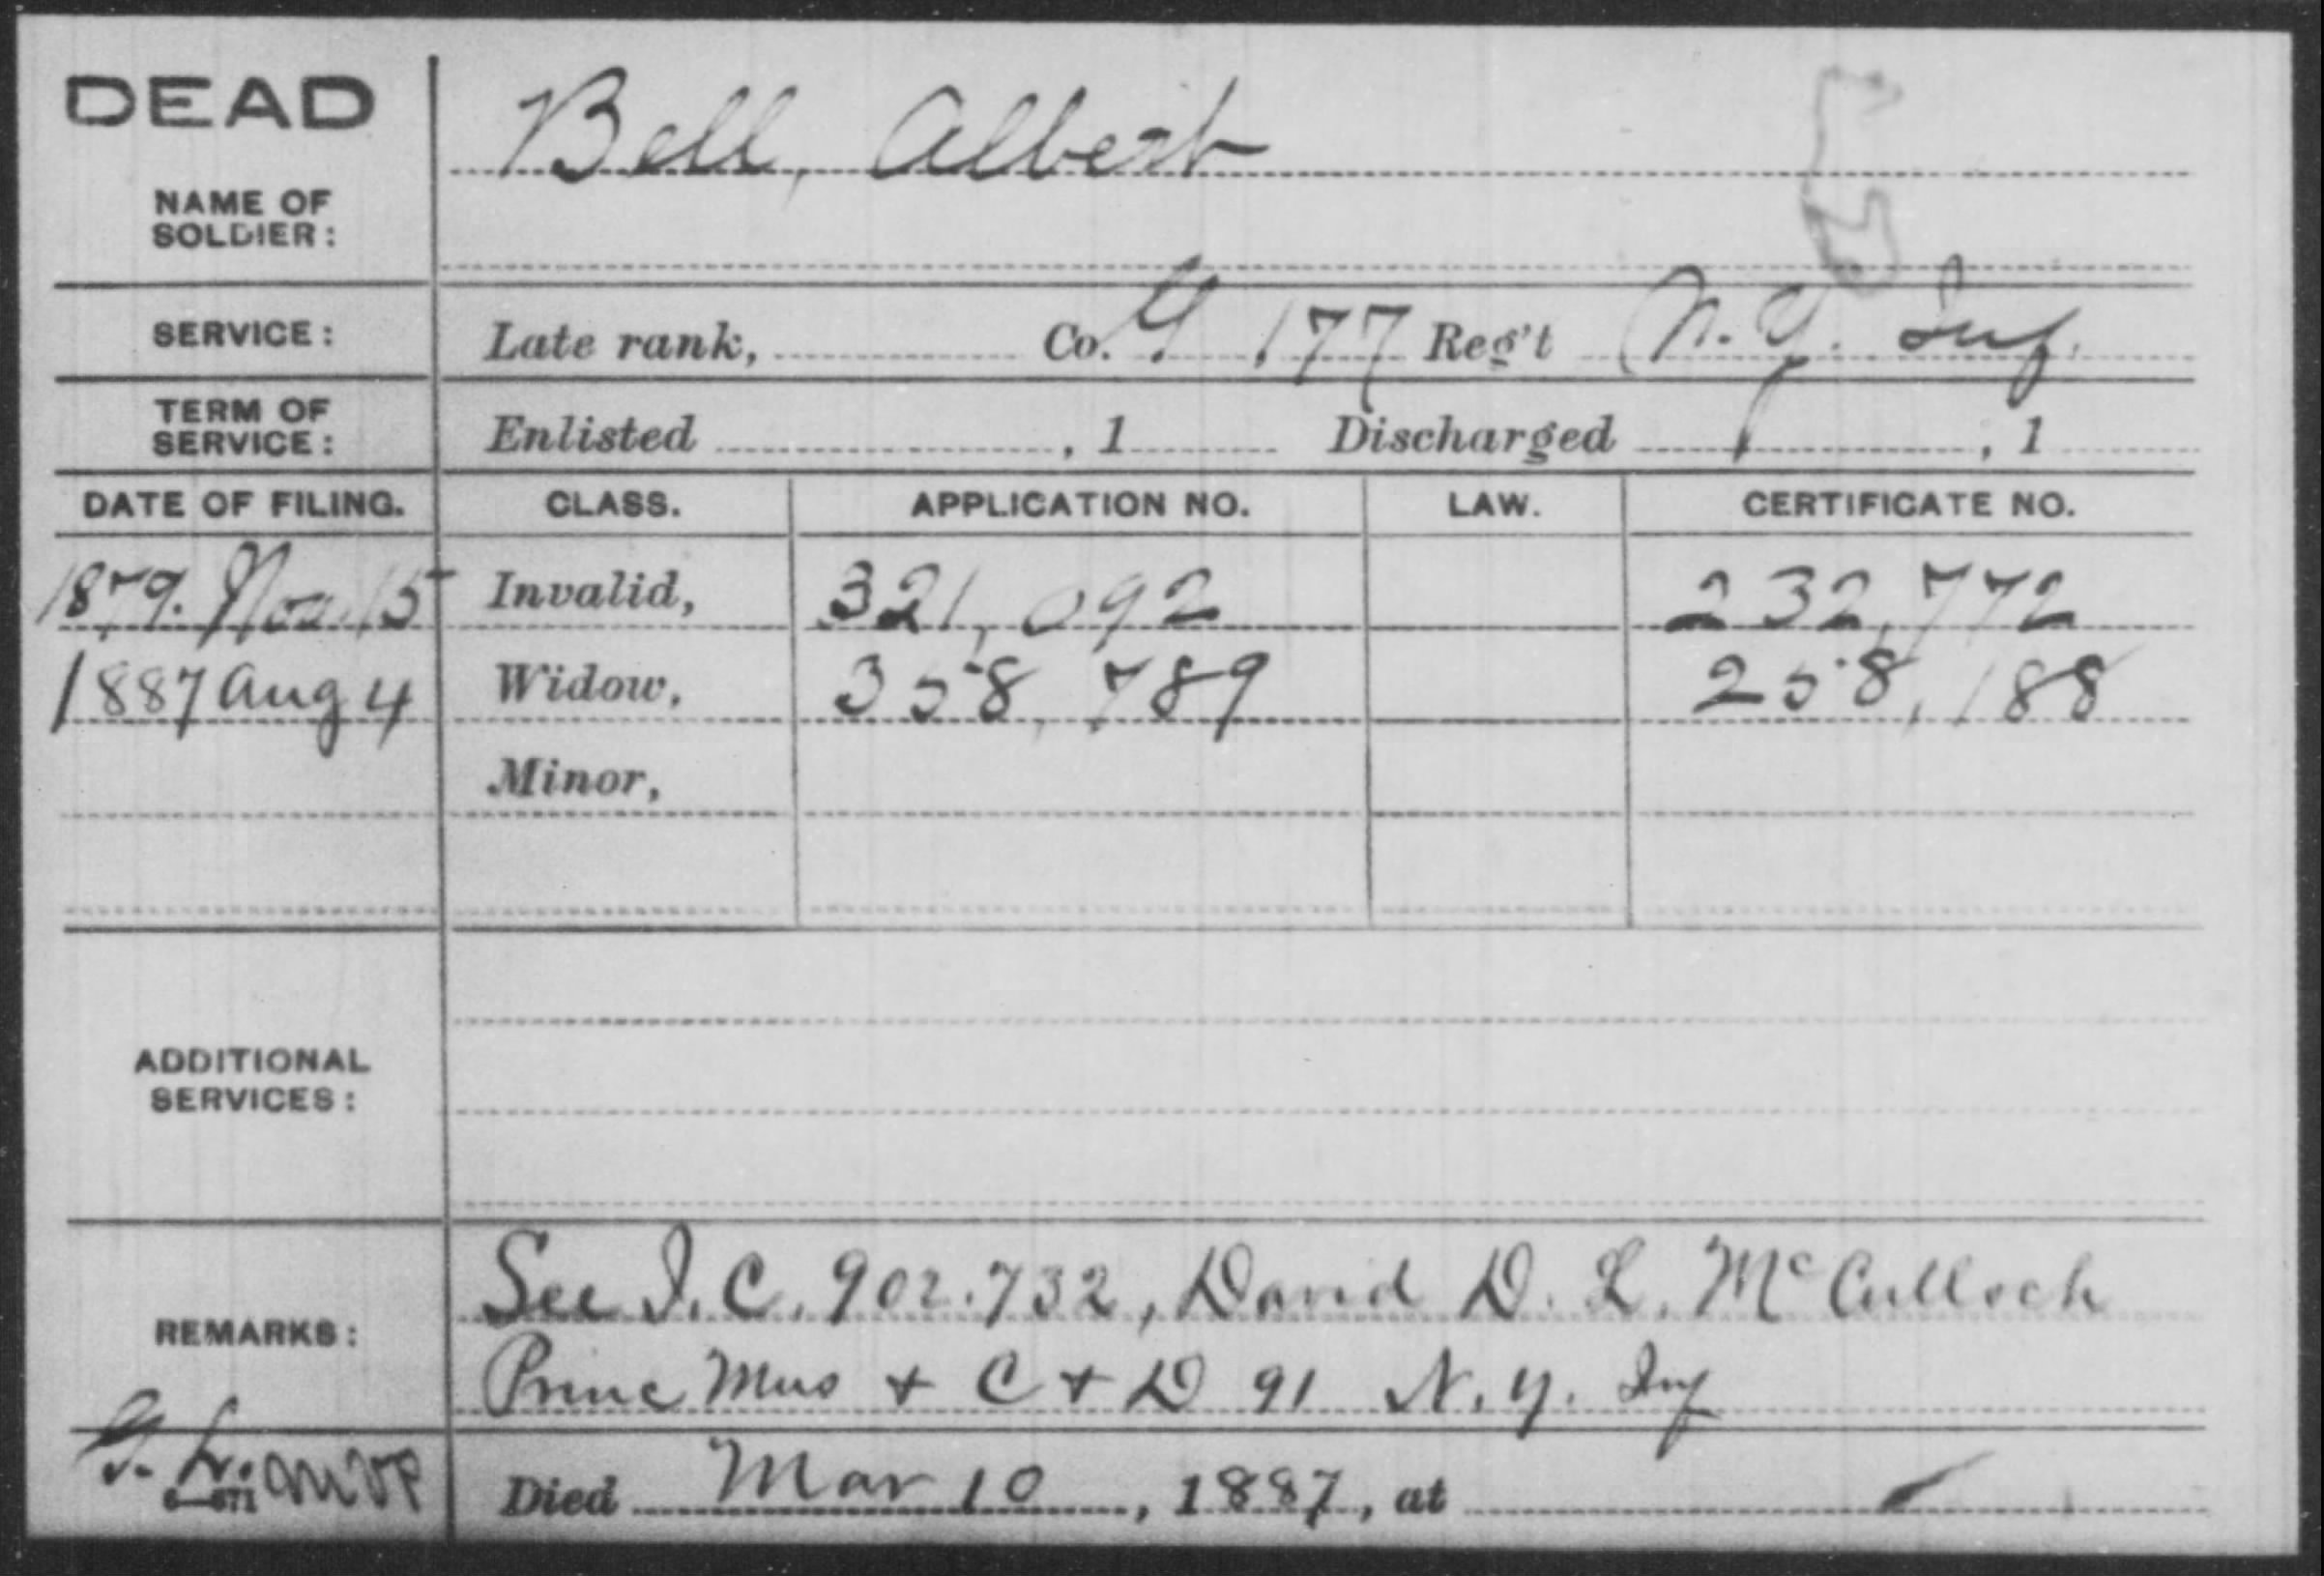 DEAD
Bell, Albert
NAME OF
SOLDIER:
SERVICE: Late rank, Co. G 177 Reg't N.Y. Inf.
TERM OF
SERVICE: Enlisted , 1 Discharged , 1
DATE OF FILING. CLASS. APPLICATION NO. LAW. CERTIFICATE NO.
1879. Nov. 15 Invalid, 321,092 232,772
1887 Aug 4 Widow, 358,789 258,188
Minor,
ADDITIONAL
SERVICES:
See I.C. 902.732, David D. L. McCulloch
REMARKS:
Princ Mus & C & D 91 N.Y. Inf
Died Mar 10, 1887, at